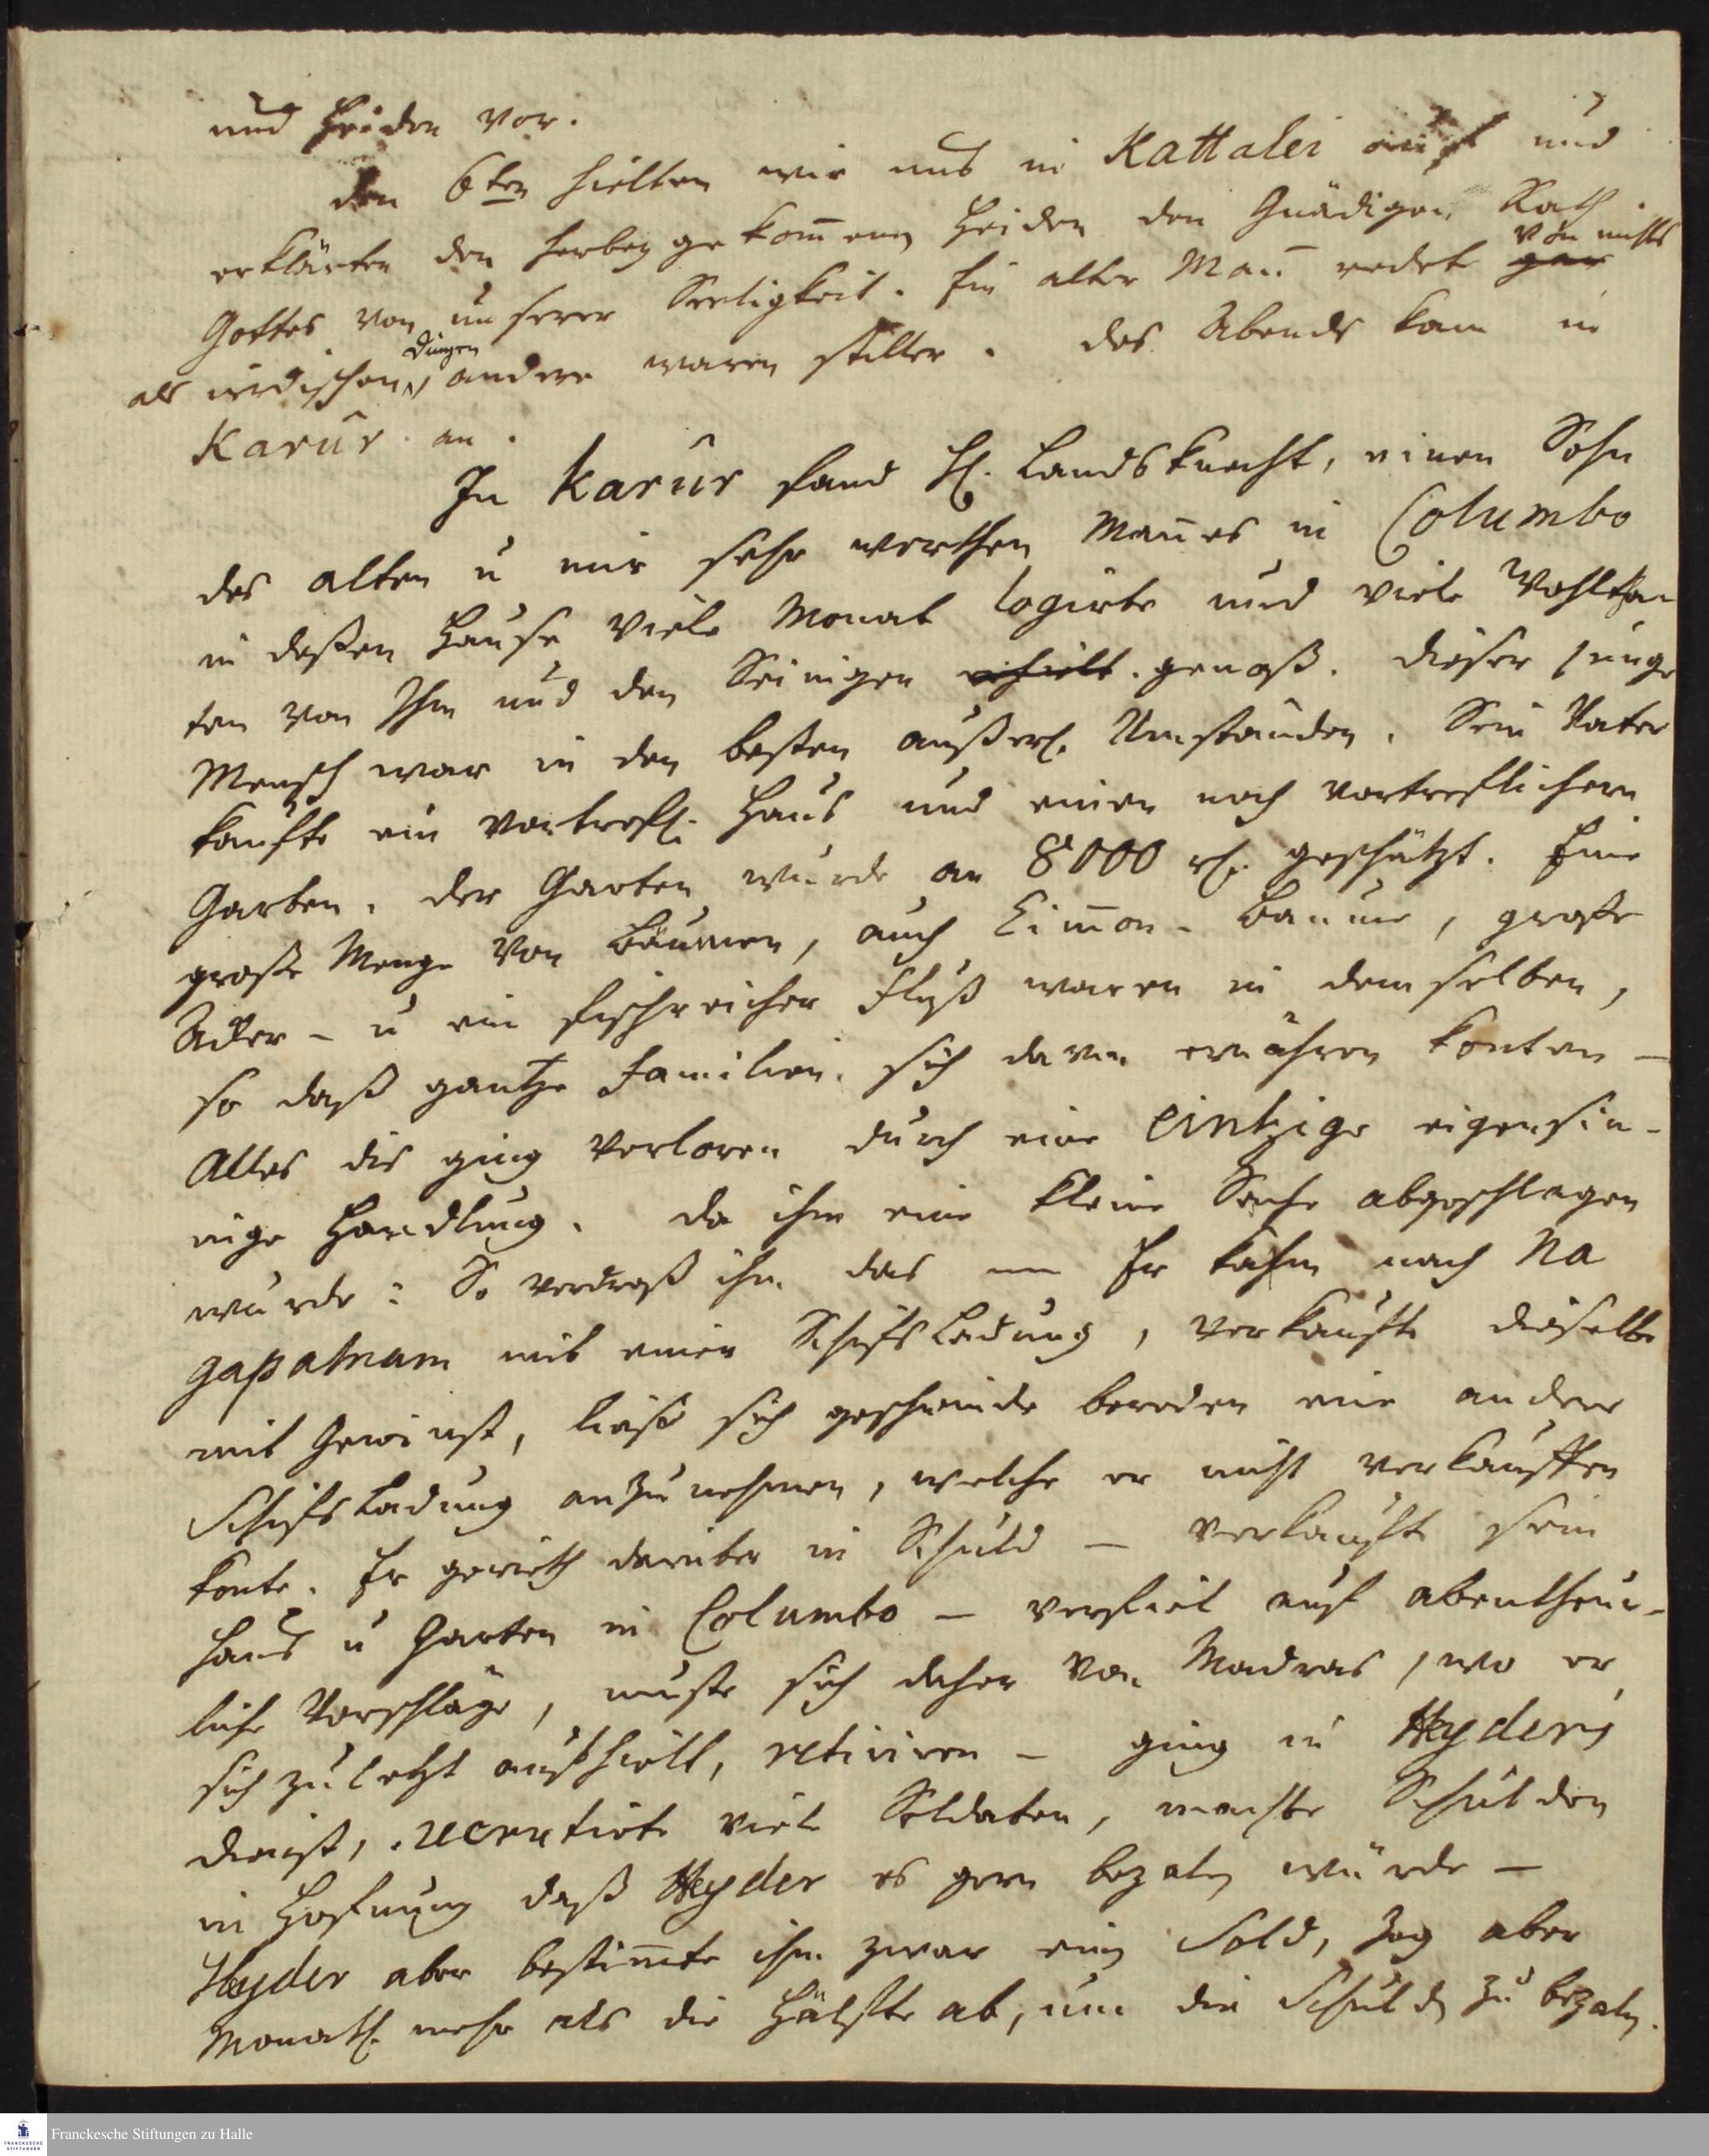 und Heiden vor.
den 6ten hielten wir uns in Kattalei auf und
erklärten den herbey gekom̅enen Heiden den Gnädigen Rath
Gottes von unserer Seeligkeit. Ein alter Man̅ redete gar von nichts
als irdischen Dingen, andere waren stiller. des Abends kam in
Karur an.
In Karur fand H. Landsknecht, einen Sohn
des alten u mir sehr werthen Man̅es in Columbo
in deßen Hause viele Monat logirte und viele Wohltha-
ten von Ihm und den Seinigen erhielt. genoß. Dieser junge
Mensch war in den besten äußerl. Umständen. Sein Vater
kaufte ein vortrefl. Haus und einen noch vortreflichern
Garten. der Garten wurde an 8000 rh. geschätzt. Eine
große Menge von Bäumen, auch Lim̅on-Bäume, große
Äcker - u ein fischreicher Fluß waren in demselben,
so daß gantze Familien sich davon ernähren konten -
Alles dis ging verloren durch eine eintzige eigensin-
nige Handlung. Da ihm eine kleine Sache abgeschlagen
wurde: So verdroß ihn das Er kahm nach Na
gapatnam mit einer SchifsLadung, verkaufte dieselbe
mit Gewinst, ließ sich geschwinde bereden eine andere
SchifsLadung anzunehmen, welche er nicht verkauffen
konte. Er gerieth darüber in Schuld - verkaufte sein
Haus u Garten in Columbo - verfiel auf abentheur-
liche Vorschläge, muste sich daher von Madras, wo er
sich zuletzt aufhielt, retiriren - ging in Hyders
dienst, recrutirte viele Soldaten, machte Schulden
in Hofnung daß Hyder es gern bezaln würde -
Hyder aber bestim̅te ihm zwar ein Sold, zog aber
Monatl. mehr als die Hälfte ab, um die Schuld zu bezaln.
Franckesche Stiftungen zu Halle
FRANCKESCHE STIFTUNGEN